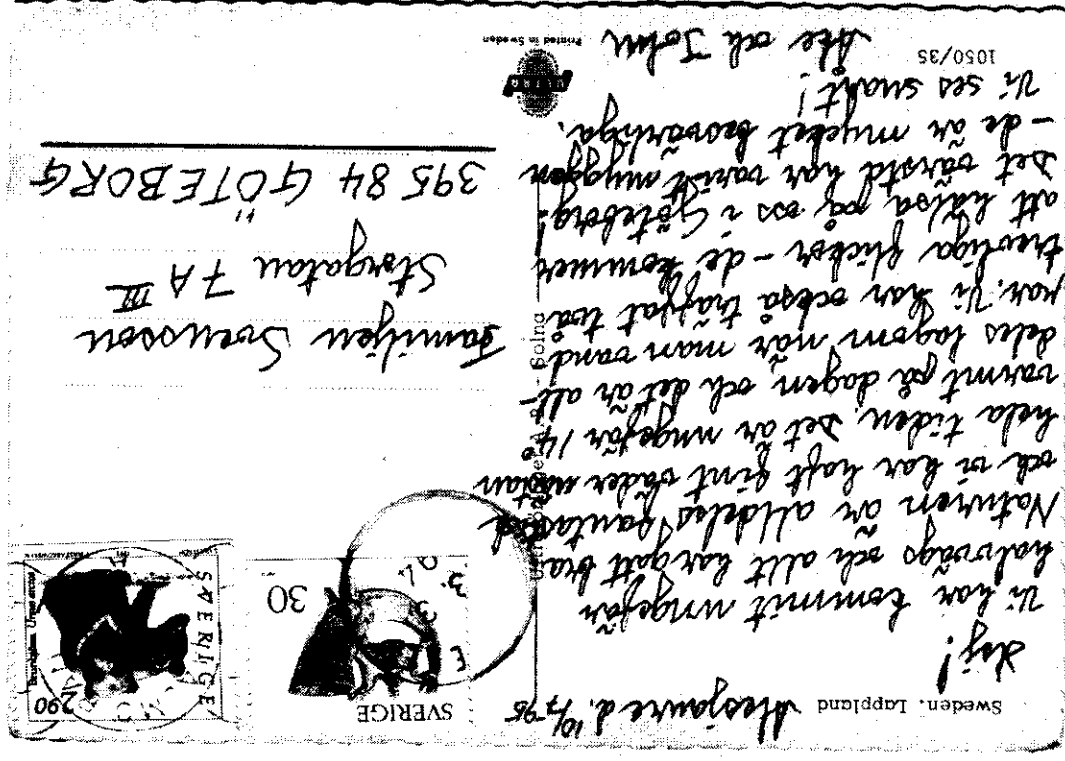 Sweden. Lappland
Alesjaure d. 10/7 95
Hej!
Vi har kommit ungefär
halvvägs och allt har gått bra
Naturen är alldeles fantastisk
och vi har haft fint väder nästan
hela tiden. Det är ungefär 14°
varmt på dagen och det är all-
deles lagom när man vand-
rar. Vi har också träffat två
trevliga flickor - de kommer
att hälsa på oss i Göteborg!
Det värsta har varit myggen
- de är mycket besvärliga.
Vi ses snart!
Åke och John
1050/35
Printed in Sweden
Solna
SVERIGE
30
SVERIGE
290
Familjen Svensson
Storgatan 7A III
395 84 GÖTEBORG